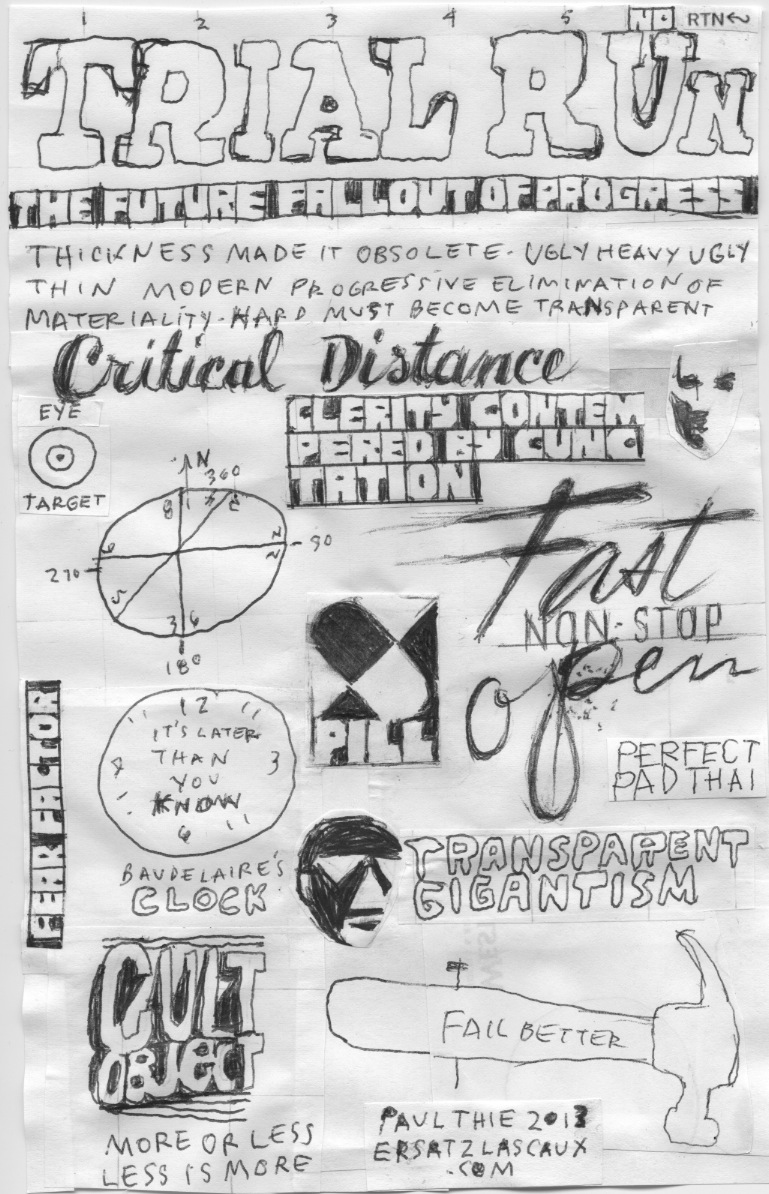 1 2 3 4 5 NO. RTN
TRIAL RUN
THE FUTURE FALLOUT OF PROGRESS
THICKNESS MADE IT OBSOLETE. UGLY HEAVY UGLY
THIN MODERN PROGRESSIVE ELIMINATION OF
MATERIALITY. HARD MUST BECOME TRANSPARENT
Critical Distance
EYE
TARGET
CLERITY CONTEM
PERED BY CUNC
TATION
N
360
90
270
180
Fast
NON-STOP
open
PILL
PERFECT
PAD THAI
FEAR FACTOR
12
IT'S LATER
THAN
YOU
KNOW
3
6
9
BAUDELAIRE'S
CLOCK
TRANSPARENT
GIGANTISM
CULT
OBJECT
FAIL BETTER
MORE OR LESS
LESS IS MORE
PAUL THIE 2013
ERSATZLASCAUX
.COM